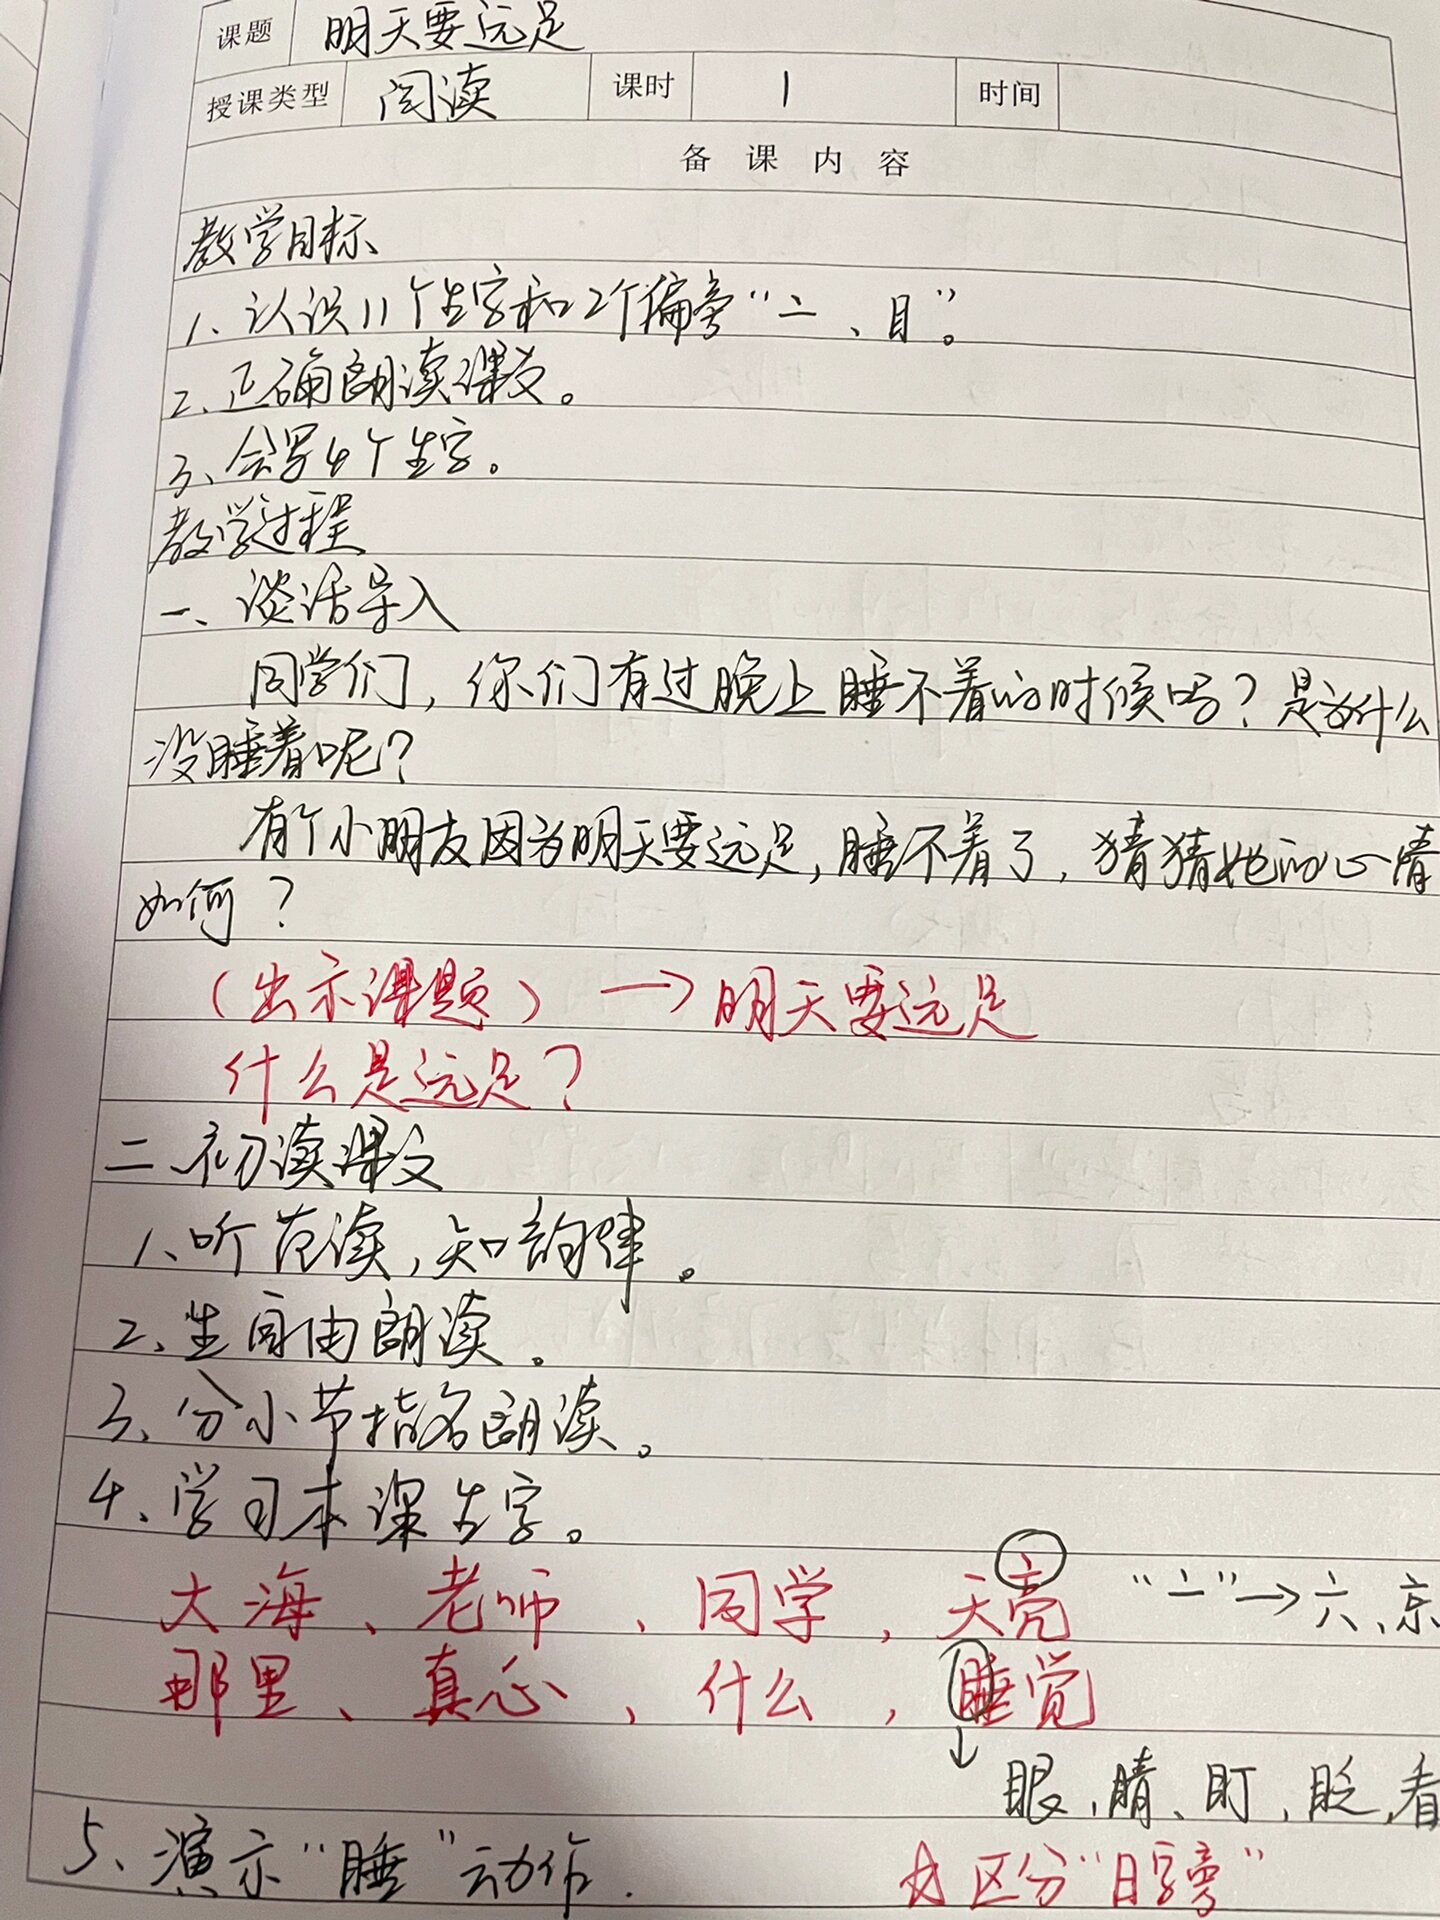 课题 明天要远足
授课类型 阅读 课时 1 时间
备课内容
教学目标
1、认识11个生字和2个偏旁“亠、目”。
2、正确朗读课文。
3、会写4个生字。
教学过程
一、谈话导入
同学们，你们有过晚上睡不着的时候吗？是为什么
没睡着呢？
有个小朋友因为明天要远足，睡不着了，猜猜她的心情
如何？
（出示课题）→明天要远足
什么是远足？
二、初读课文
1、听范读，知韵律。
2、生自由朗读。
3、分小节指名朗读。
4、学习本课生字。
大海、老师、同学，天亮 “亠”→六、京
那里、真心、什么，睡觉
↓
眼，睛、盯，眨，看
5、演示“睡”动作. ☆区分“日字旁”